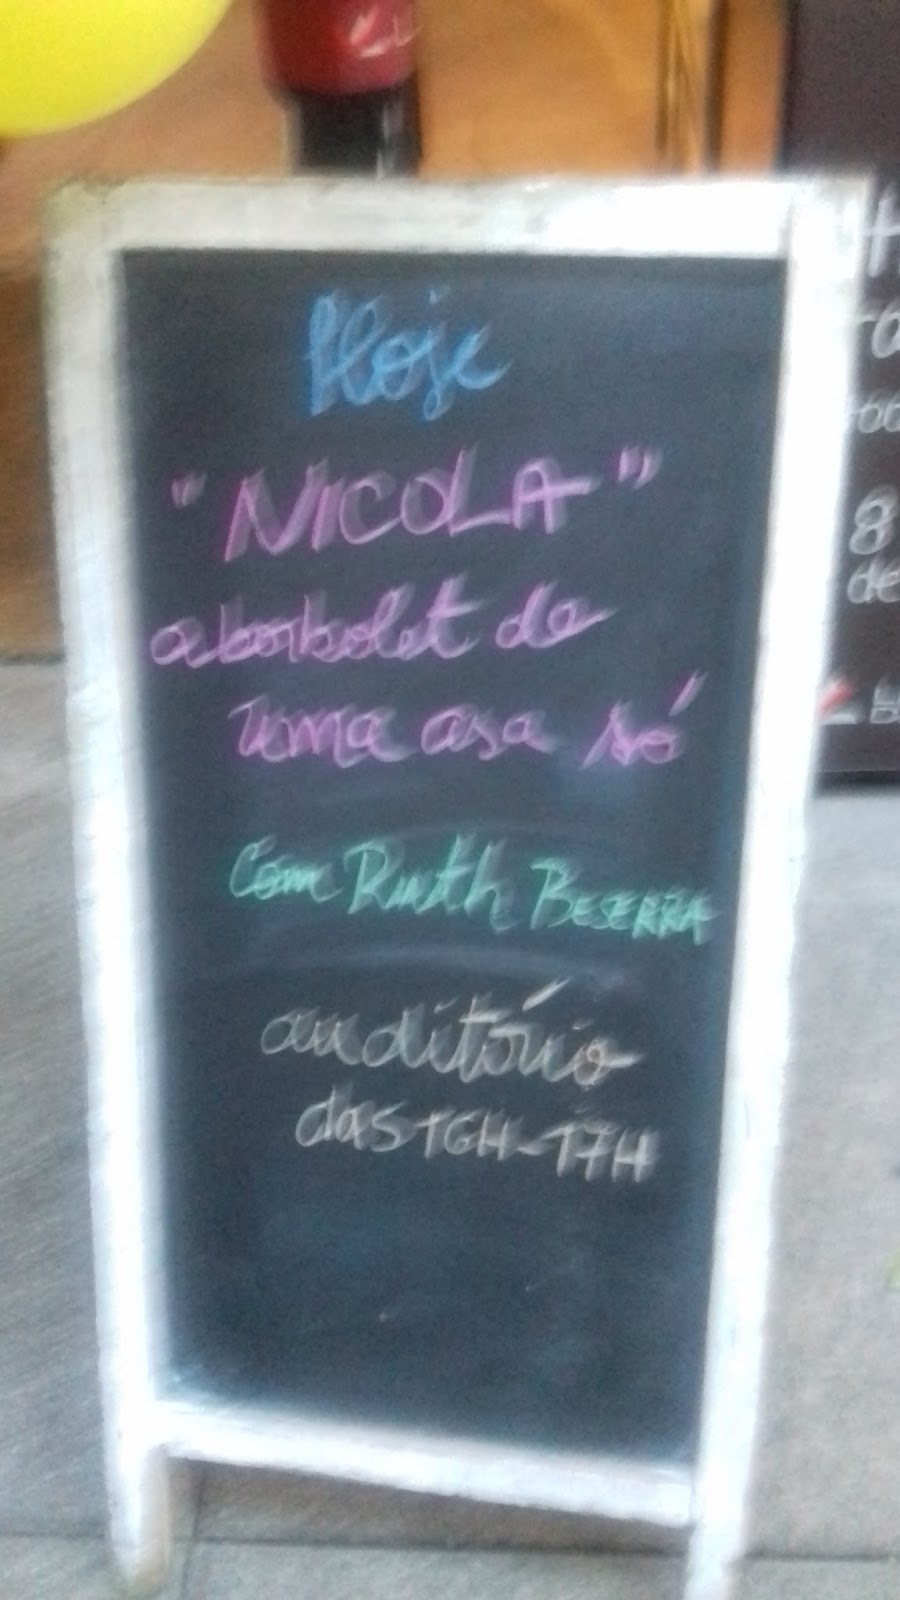 Hoje
"NICOLA"
a borbolet de
uma asa só
Com Ruth BESERRA
auditório
das 16H-17H
8
de